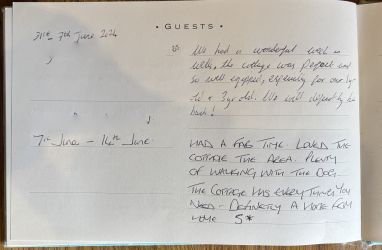 • GUESTS •
31st - 7th June 2024
We had a wonderful week in
the cottage was perfect and
so well equipped, especially for our
& 3 yr old. We will definitely be
back!
7th June - 14th June
HAD A FAB TIME. LOVED THE
COTTAGE THE AREA. PLENTY
OF WALKING WITH THE DOG.
THE COTTAGE HAS EVERYTHING YOU
NEED - DEFINETLY A HOME FROM
HOME 5*